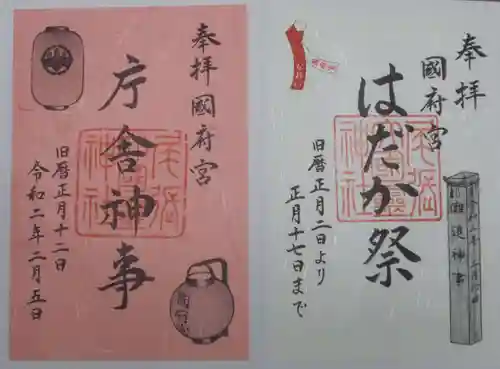 奉拝
國府宮
はだか祭
旧暦正月二日より
正月十七日まで
儺追神事
尾張
神社
奉拝國府宮
庁舎神事
旧暦正月十二日
令和二年二月五日
國府宮
尾張
神社